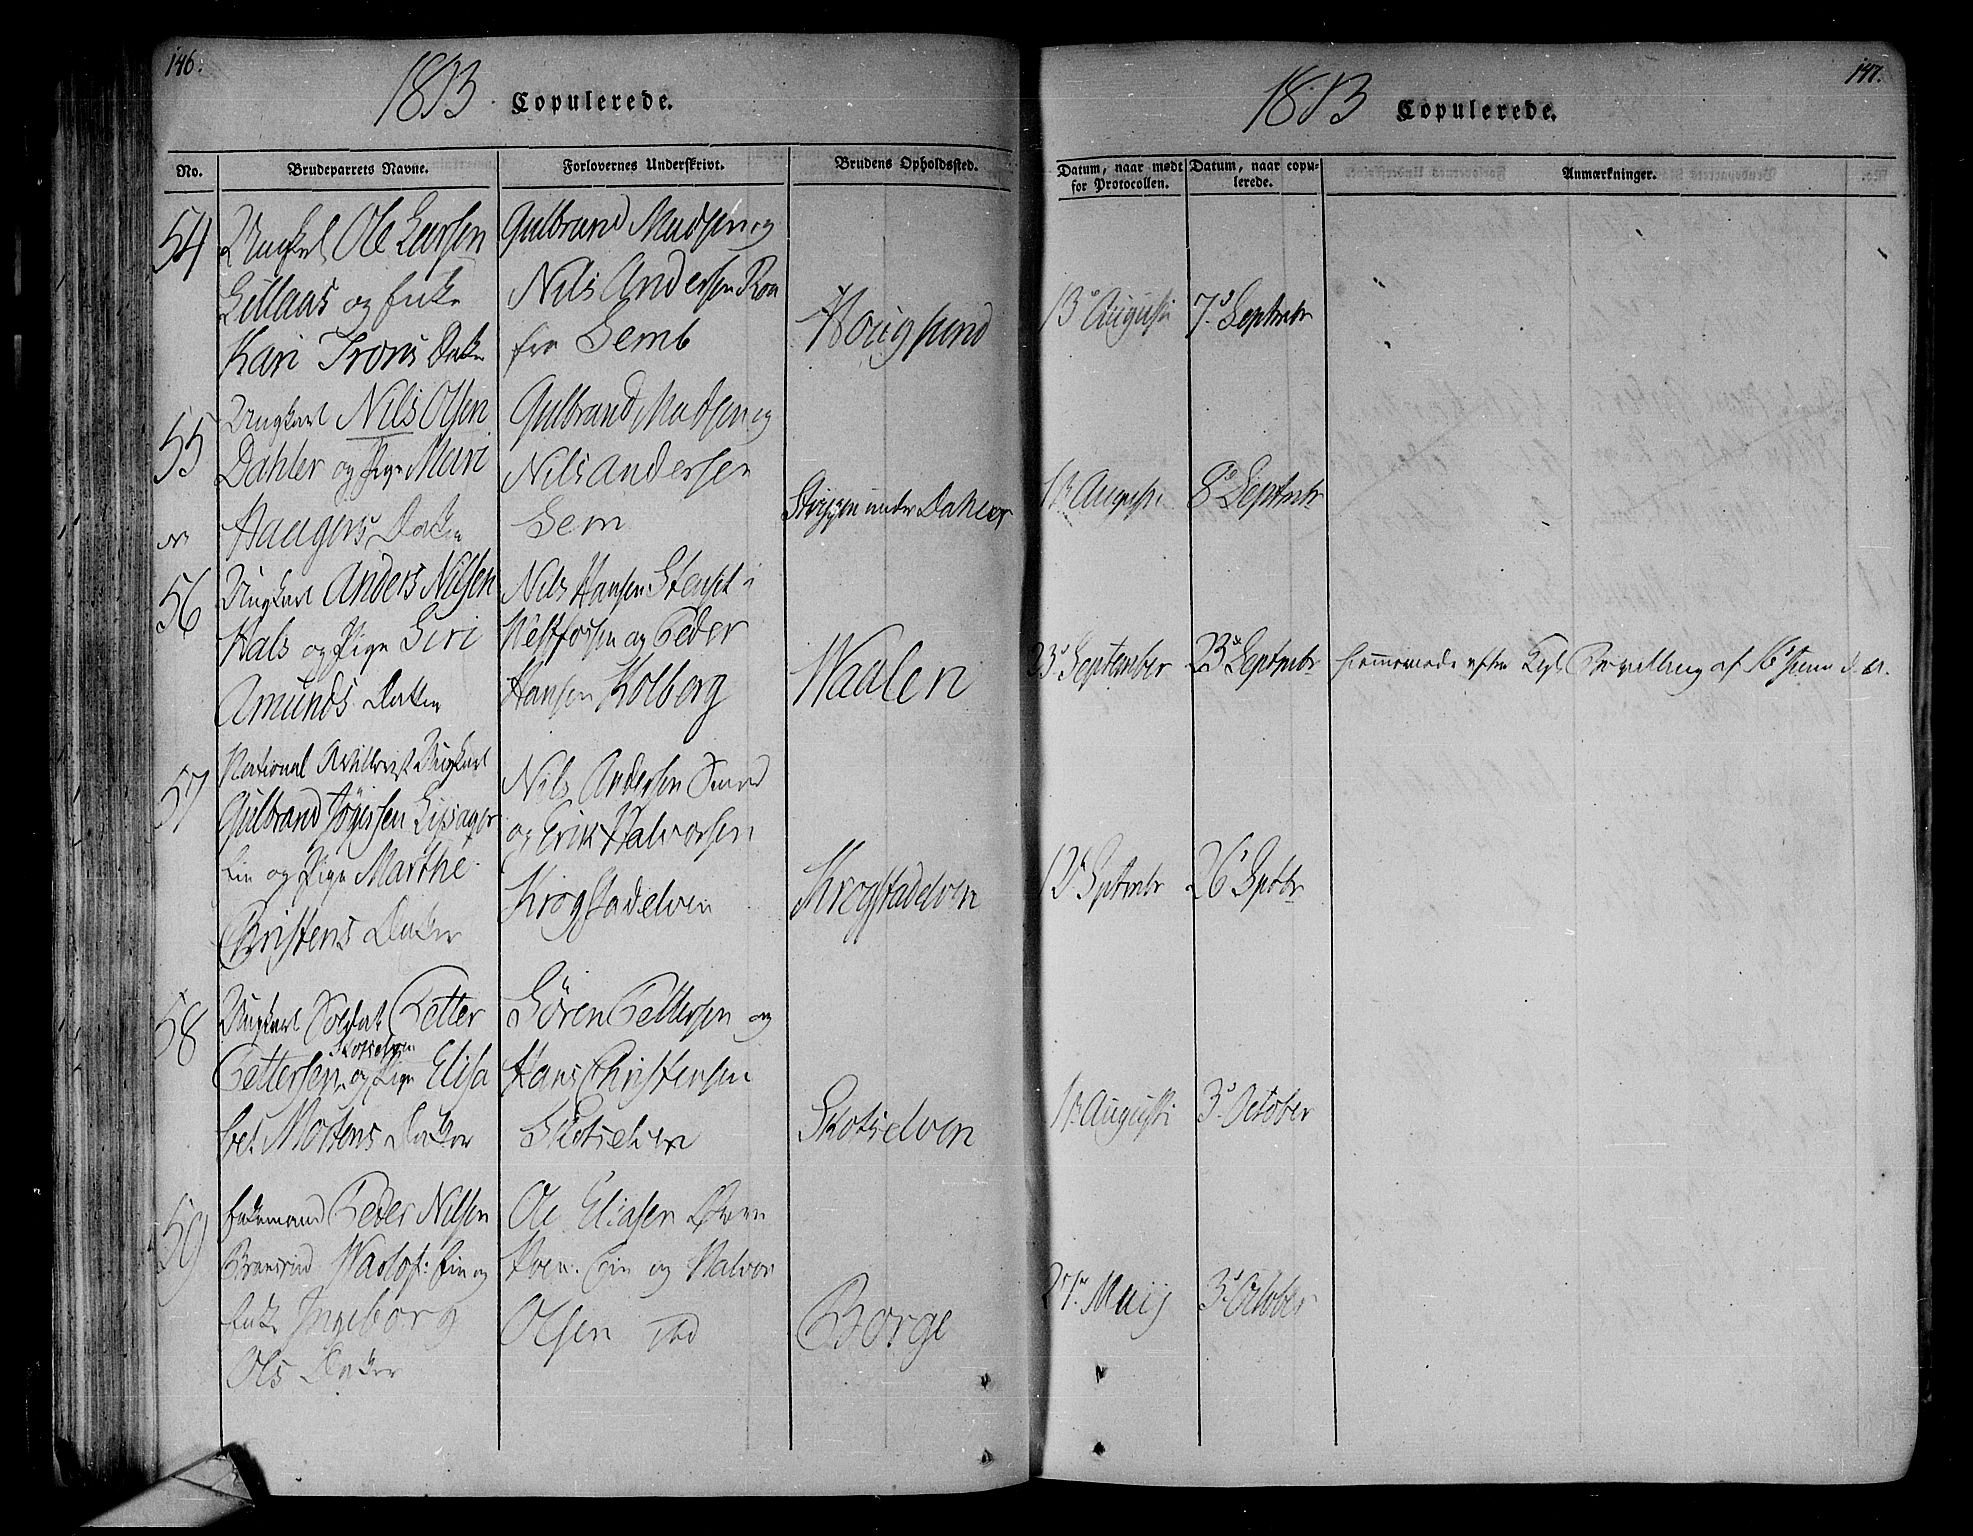 146.
1813. Copulerede.
No. Brudeparrets Navne. Forlovernes Underskrivt. Brudens Opholdssted.
54
Ungkarl Ole Larsen
Lillaas og Enke
Kari Trons Datter
Gulbrand Madsen og
Nils Andersen Roa
fra Semb
Hougsund
55
Ungkarl Nils Olsen
Dahler og Pige Mari
Haagens Datter
Gulbrand Madsen og
Nils Andersen
Sem
under Dahler
56
Ungkarl Anders Nilsen
Hals og Pige Siri
Amunds Datter
Nils Hansen Stenset i
Westfossen og Peder
Hansen Kolberg
Waalen
57
National Artillerist Ungkarl
Gulbrand
Eie og Pige Marthe
Christens Datter
Nils Andersen
og Erik Halvorsen
Krogstadelven
Krogstadelven
58
Ungkarl Soldat Petter
Skotselven
Pettersen og Pige Elisa
bet Mortens Datter
Sören Pettersen og
Hans Christensen
Skotselven
Skotselven
59
Enkemand Peder Nilsen
Eie og
Enke Ingeborg
Ols Datter
Ole Eliasen
Eie og Halvor
Olsen ibd
Borge
147.
1813 Copulerede.
Datum, naar mødt for Protocollen. Datum, naar copulerede. Anmærkninger.
13de Augusti 7de Septembr
Augusti 8de Septembr
23de September 23de Septembr hiemmeviede efter Kgl. Bevilling af 16 Juni d. A.
12te Septembr 26de Septbr
Augusti 3de October
27de Maij 3de October